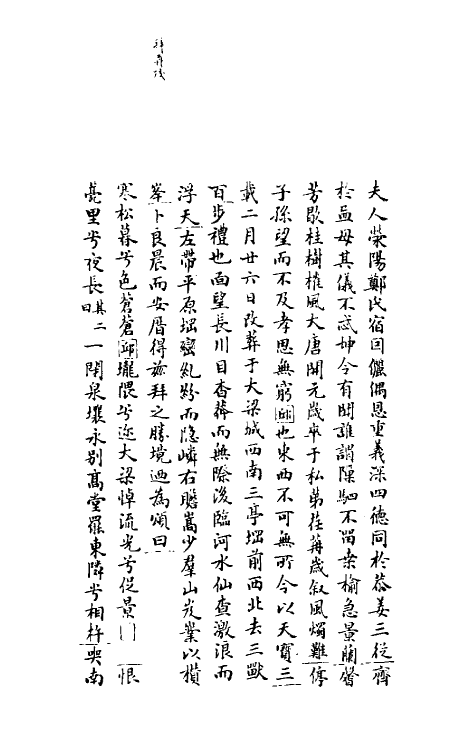 夫人滎陽鄭氏宿因儷偶恩重義深四德同於恭姜三從齊
於孟母其儀不忒坤今有聞誰謂隙駟不留桑榆急景蘭馨
芳歇桂樹摧風大唐開元歲卒于私第荏苒歲叙風燭難停
子孫望而不及孝思無窮邱也東西不可無所今以天寶三
載二月廿六日改葬于大梁城西南三亭堽前西北去三獸
百步禮也面望長川目杳莽而無際後臨河水仙查激浪而
浮天左帶平原堽巒糺紛而隐嶙右瞻嵩少羣山岌業以横
峯卜良晨而安厝得兹拜之勝境迺為頌曰
寒松暮兮色蒼蒼邱壠隈兮迩大梁悼流光兮促景□恨
蒿里兮夜長其二曰一閇泉壤永別髙堂罷東隣兮相杵哭南